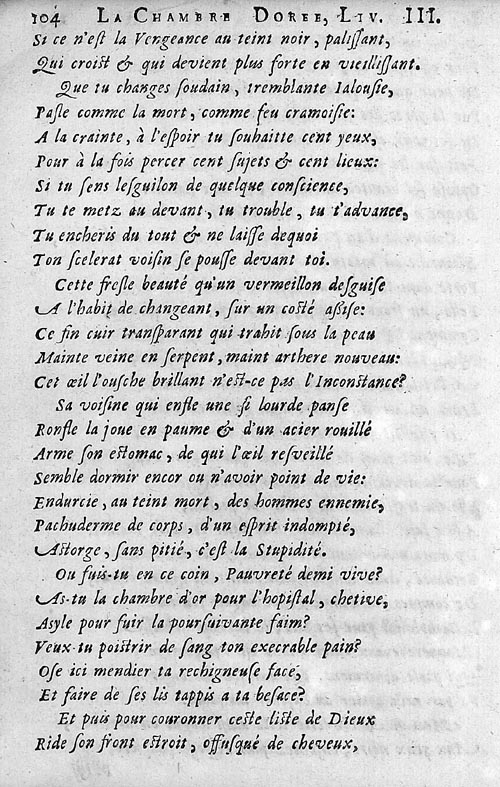 104 LA CHAMBRE DOREE, LIV. III.
Si ce n'eſt la Vengeance au teint noir, paliſſant,
Qui croiſt & qui devient plus forte en vieilliſſant.
Que tu changes ſoudain, tremblante Ialouſie,
Paſle comme la mort, comme feu cramoiſie:
A la crainte, à l'eſpoir tu ſouhaitte cent yeux,
Pour à la fois percer cent ſujets & cent lieux:
Si tu ſens leſguilon de quelque conſcience,
Tu te metz au devant, tu trouble, tu t'advance,
Tu encheris du tout & ne laiſſe dequoi
Ton ſcelerat voiſin ſe pouſſe devant toi.
Cette freſle beauté qu'un vermeillon deſguiſe
A l'habit de changeant, ſur un coſté aſſiſe:
Ce fin cuir tranſparant qui trahit ſous la peau
Mainte veine en ſerpent, maint arthere nouveau:
Cet œil l'ouſche brillant n'eſt-ce pas l'Inconſtance?
Sa voiſine qui enfle une ſi lourde panſe
Ronfle la joue en paume & d'un acier rouillé
Arme ſon eſtomac, de qui l'œil reſveillé
Semble dormir encor ou n'avoir point de vie:
Endurcie, au teint mort, des hommes ennemie,
Pachuderme de corps, d'un eſprit indompté,
Aſtorge, ſans pitié, c'eſt la Stupidité.
Ou fuis-tu en ce coin, Pauvreté demi vive?
As-tu la chambre d'or pour l'hopiſtal, chetive,
Aſyle pour fuir la pourſuivante faim?
Veux-tu poiſtrir de ſang ton execrable pain?
Oſe ici mendier ta rechigneuſe face,
Et faire de ſes lis tappis a ta beſace?
Et puis pour couronner ceſte liſte de Dieux
Ride ſon front eſtroit, offuſqué de cheveux,